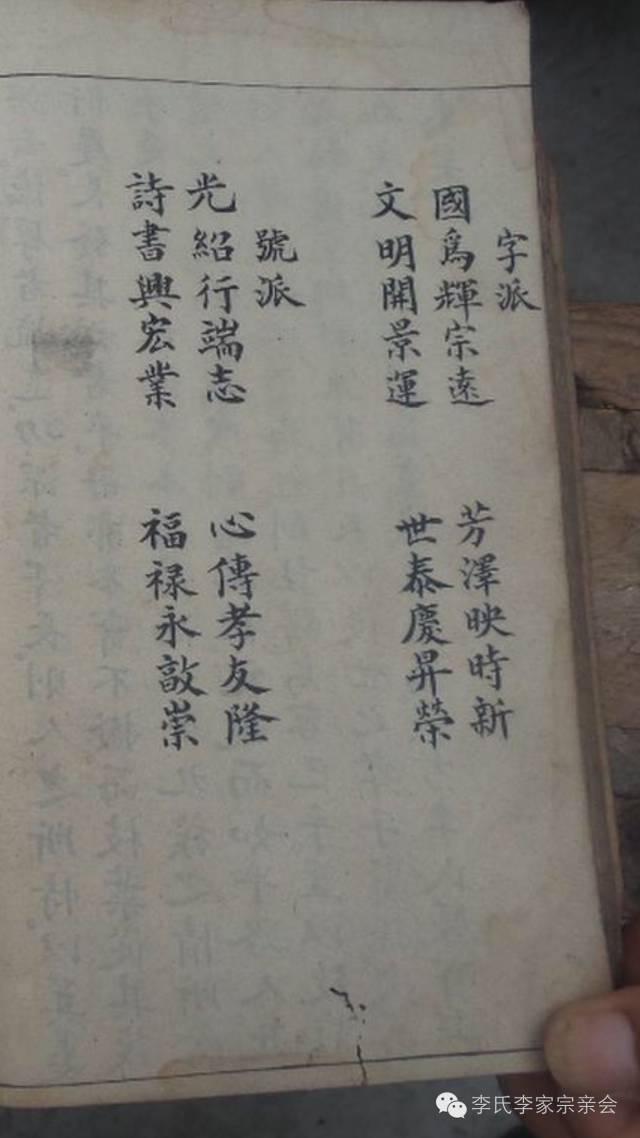 字派
國爲輝宗遠 芳澤映時新
文明開景運 世泰慶昇榮
號派
光紹行端志 心傳孝友隆
詩書興宏業 福禄永敦崇
李氏李家宗亲会